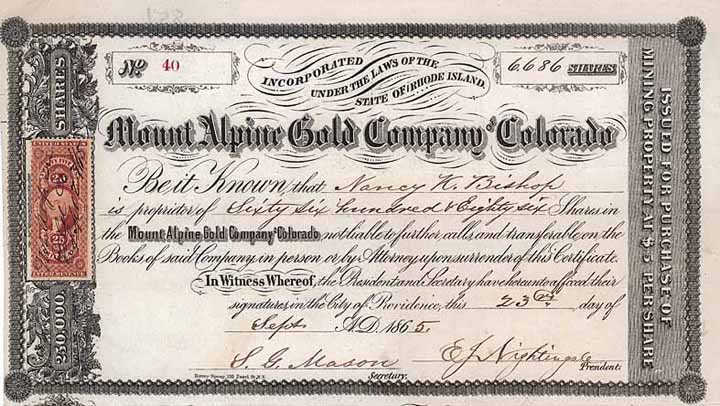 No 40
INCORPORATED
UNDER THE LAWS OF THE
STATE OF RHODE ISLAND.
6,686 SHARES
Mount Alpine Gold Company of Colorado
Be it Known, that Nancy K. Bishop
is proprietor of Sixty six hundred & Eighty six Shares in
the Mount Alpine Gold Company of Colorado not liable to further calls, and transferable, on the
Books of said Company, in person or by Attorney, upon surrender of this Certificate.
In Witness Whereof, the President and Secretary have hereunto affixed their
signatures, in the City of Providence, this 23rd day of
Sept. A.D. 1865.
S. G. Mason
Secretary.
E J Nightingale
President.
SHARES
250,000.
25
ISSUED FOR PURCHASE OF
MINING PROPERTY AT $5 PER SHARE